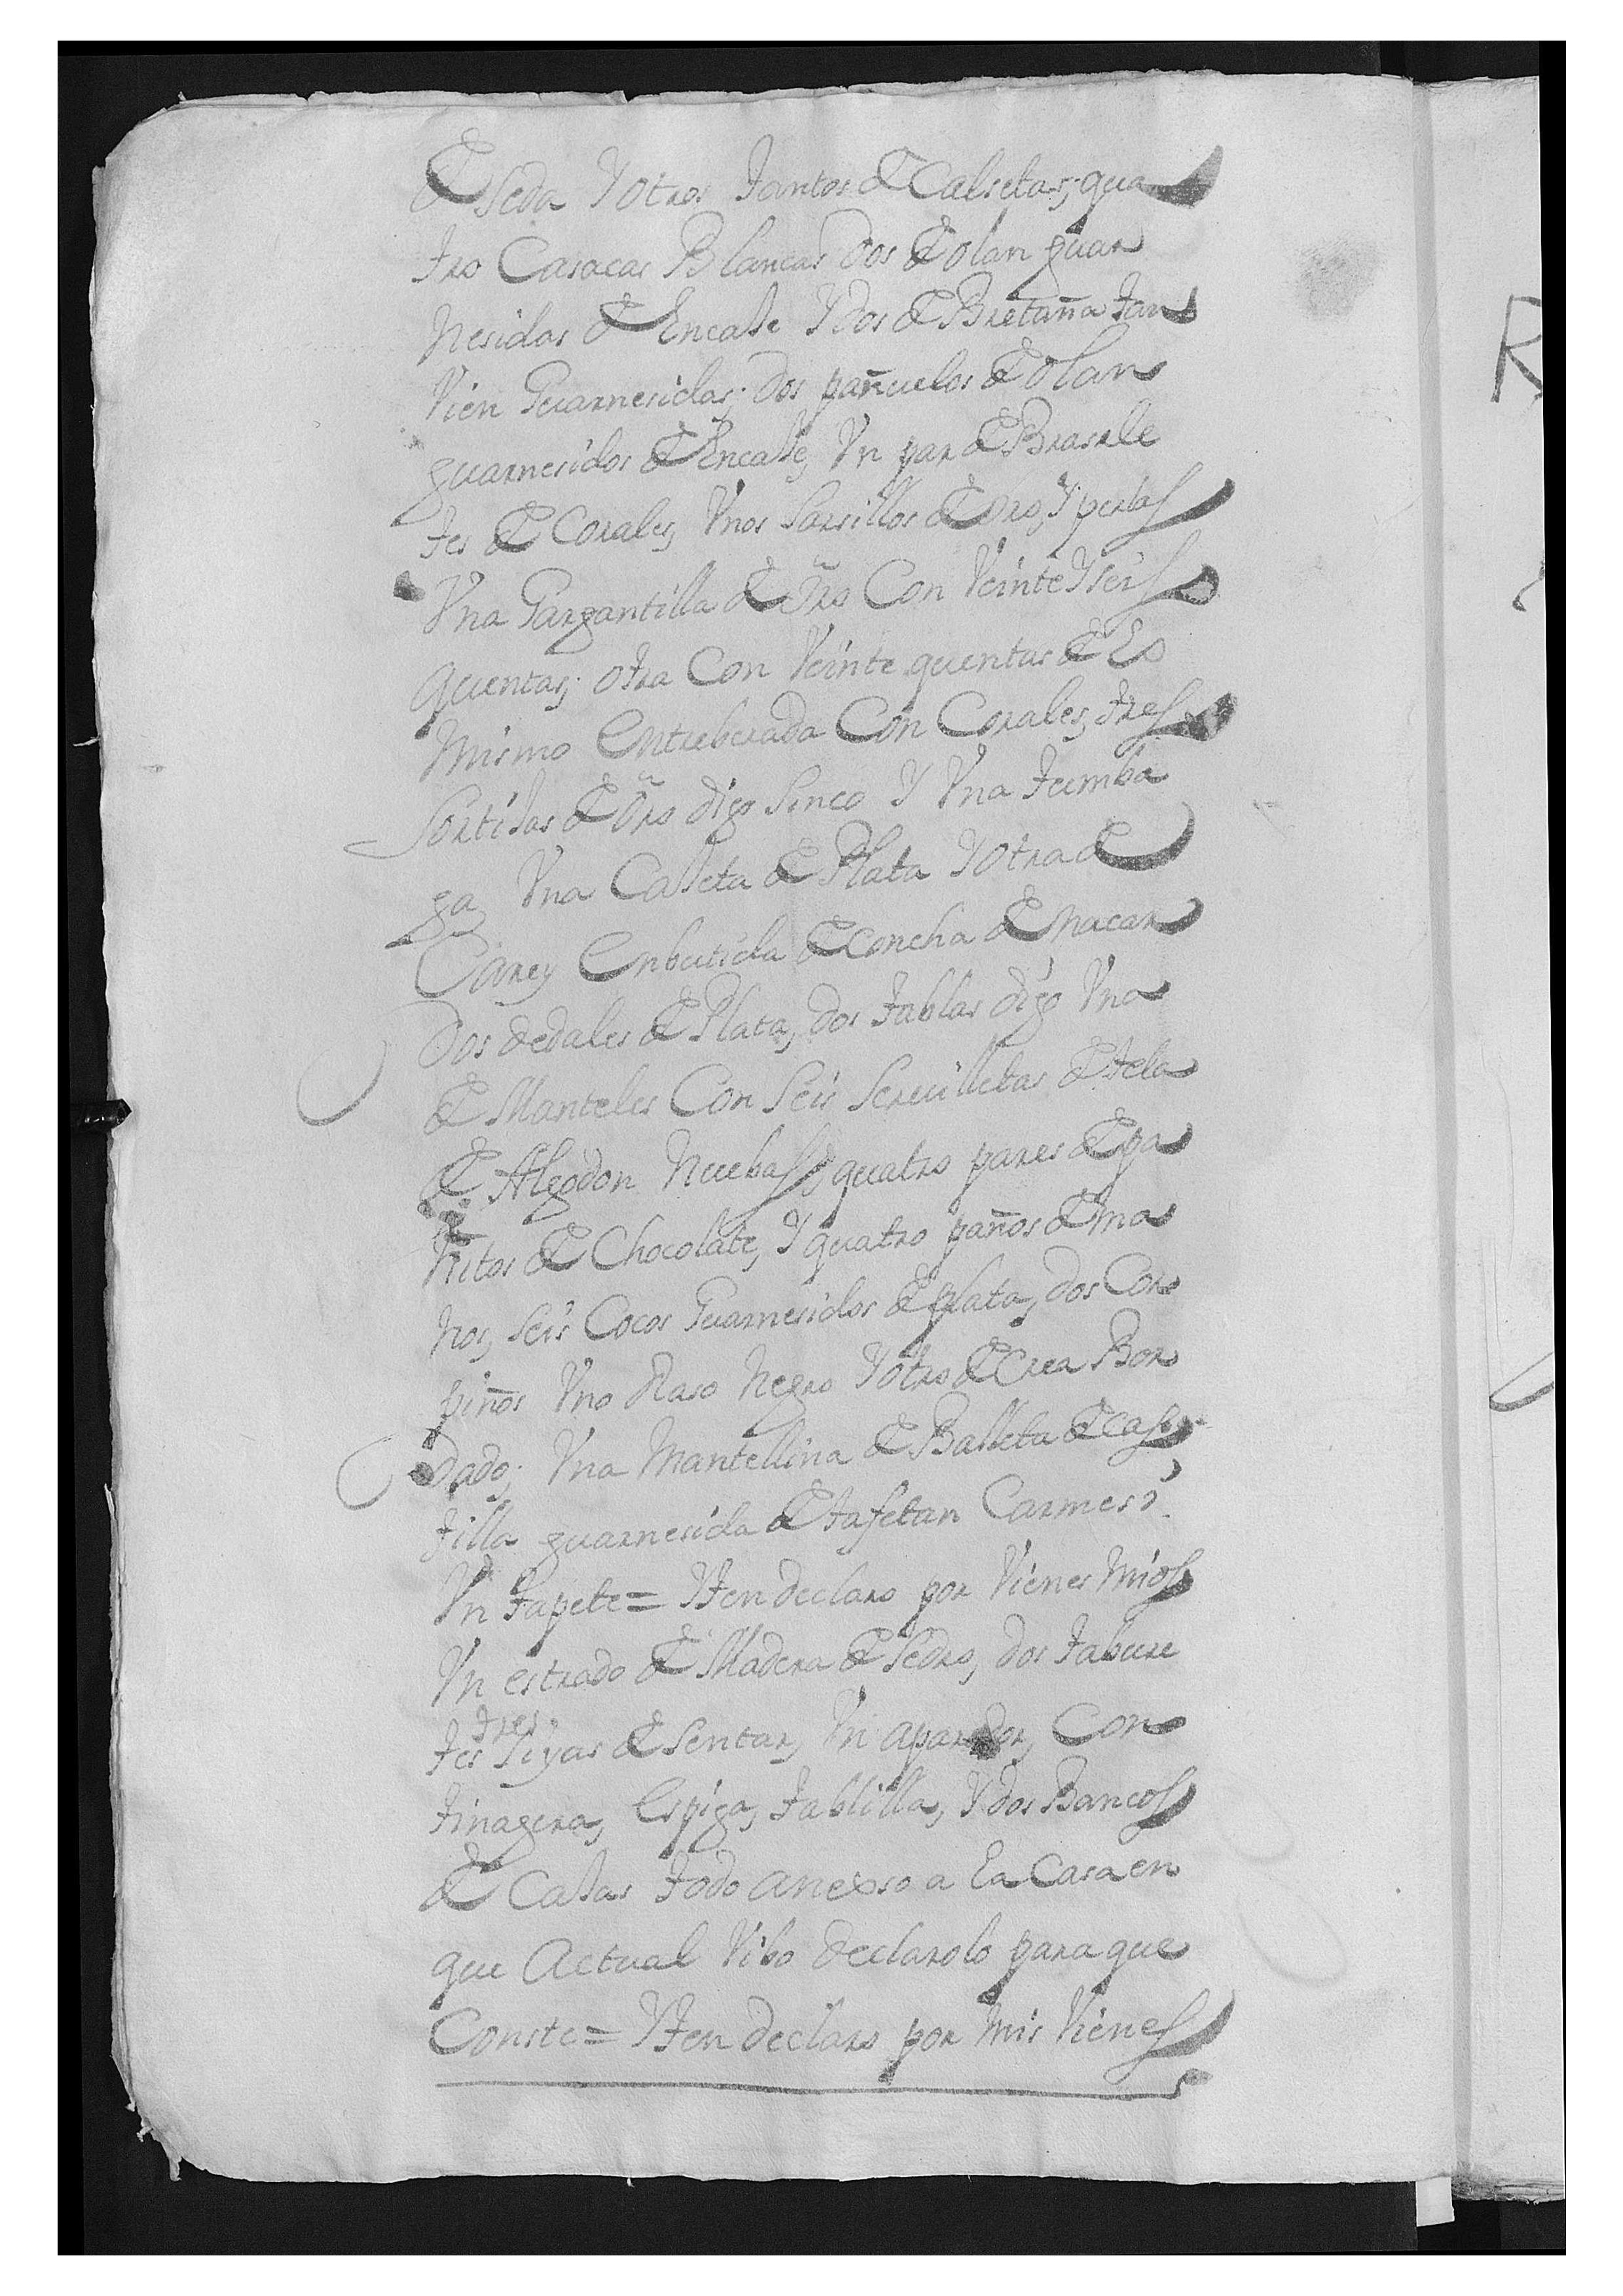 de seda Y otros tantos de Calsetas; qua
tro Casacas Blancas dos de olan guar
nesidas de Encaxe Y dos de Bretaña tan
Vien Guarnesidas; dos pañuelos de olan
guarnesidos de Encaxe, Vn par de Brasele
tes de Corales, Vnos Sarsillos de Oro, Y perlas
Vna Gargantilla de Oro Con Veinte Y seis
quentas; otra Con Veinte quentas de Lo
Mismo Entreberada Con Corales, tres
Sortijas de Oro digo Sinco Y Vna tumba
ga, Vna Caxeta de Plata Y otra de
Carey Enbutida de concha de nacar
Dos dedales de Plata, dos tablas digo Vna
de Manteles Con Seis Servilletas de tela
de Algodon Nuebas, quatro pares de pa
ñitos de Chocolate, Y quatro paños de ma
nos, Seis Cocos Guarnesidos de plata, dos Cor
piños Vno de Raso Negro Y otro de Crea Bor
dado; Vna Mantellina de Balleta de cas
tilla guarnesida de tafetan Carmesi
Vn tapete = Yten declaro por Vienes Mios
Vn estrado de Madera de Sedro, dos tabure
tes tres Siyas de Sentar, Vn aparador, Con
tinagera, Espiga, tablilla, Y dos Bancos
de Caxas todo anexso a La Casa en
que Actual Vibo declarolo para que
Conste = Yten declaro por mis Vienes
R